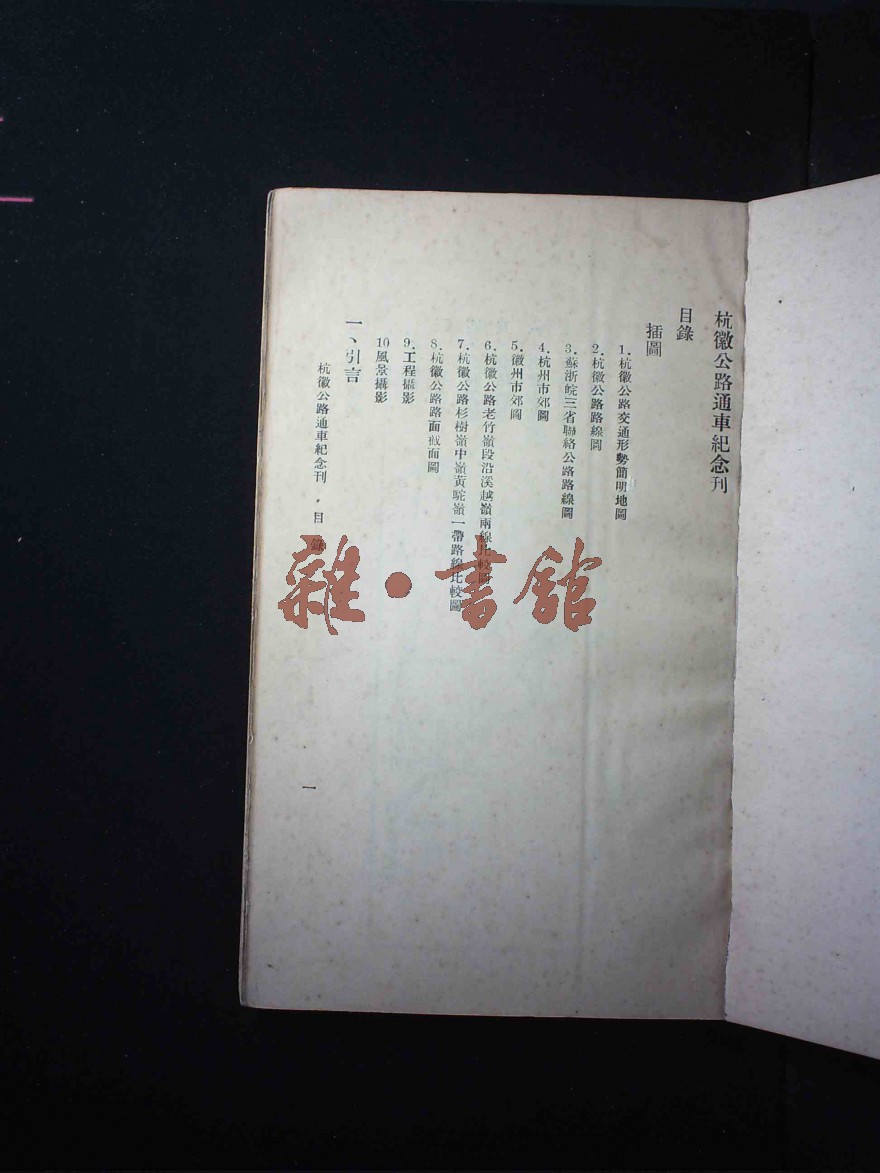 杭徽公路通車紀念刊
目錄
插圖
1.杭徽公路交通形勢簡明地圖
2.杭徽公路路線圖
3.蘇浙皖三省聯絡公路路線圖
4.杭州市郊圖
5.徽州市郊圖
6.杭徽公路老竹嶺段沿溪越嶺兩線比較圖
7.杭徽公路杉樹嶺中嶺黃駝嶺一帶路線比較圖
8.杭徽公路路面截面圖
9.工程攝影
10風景攝影
一、引言
杭徽公路通車紀念刊・目錄
一
雜・書館